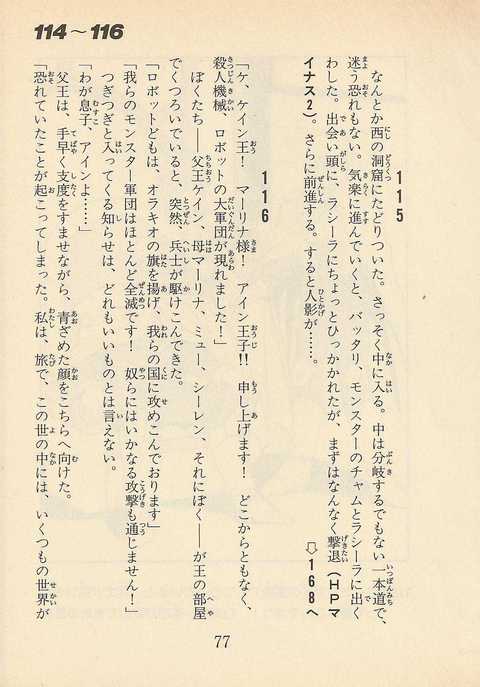 114〜116
115
なんとか西の洞窟にたどりついた。さっそく中に入る。中は分岐するでもない一本道で、
迷う恐れもない。気楽に進んでいくと、バッタリ、モンスターのチャムとラシーラに出く
わした。出会い頭に、ラシーラにちょっとひっかかれたが、まずはなんなく撃退（HPマ
イナス2）。さらに前進する。すると人影が……。
⇨168へ
116
「ケ、ケイン王！　マーリナ様！　アイン王子!!　申し上げます！　どこからともなく、
殺人機械、ロボットの大軍団が現れました！」
ぼくたち――父王ケイン、母マーリナ、ミュー、シーレン、それにぼく――が王の部屋
でくつろいでいると、突然、兵士が駆けこんできた。
「ロボットどもは、オラキオの旗を揚げ、我らの国に攻めこんでおります」
「我らのモンスター軍団はほとんど全滅です！　奴らにはいかなる攻撃も通じません！」
つぎつぎと入ってくる知らせは、どれもいいものとは言えない。
「わが息子、アインよ……」
父王は、手早く支度をすませながら、青ざめた顔をこちらへ向けた。
「恐れていたことが起こってしまった。私は、旅で、この世の中には、いくつもの世界が
77